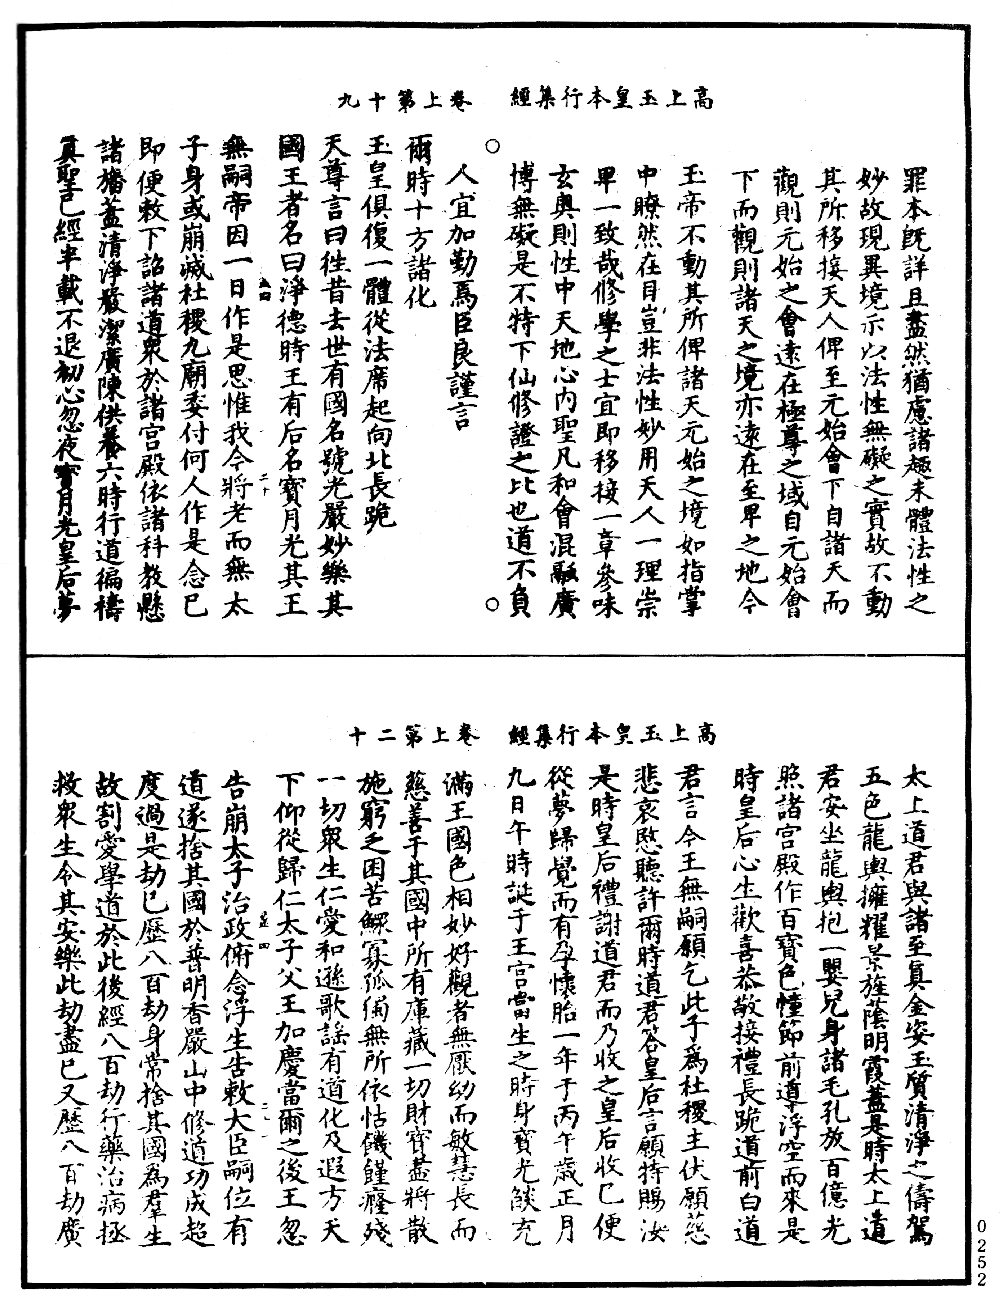 高上玉皇本行集經　卷上第十九
罪本旣詳且盡然猶慮諸趣未體法性之
妙故現異境示以法性無礙之實故不動
其所移接天人俾至元始會下自諸天而
觀則元始之會遠在極尊之域自元始會
下而觀則諸天之境亦遠在至卑之地今
玉帝不動其所俾諸天元始之境如指掌
中瞭然在目豈非法性妙用天人一理崇
卑一致哉修學之士宜即移接一章參味
玄奧則性中天地心內聖凡和會混融廣
博無礙是不特下仙修證之比也道不負
人宜加勤焉臣良謹言
爾時十方諸化
玉皇俱復一體從法席起向北長跪
天尊言曰徃昔去世有國名號光嚴妙樂其
國王者名曰淨德時王有后名寶月光其王
無嗣帝因一日作是思惟我今將老而無太
子身或崩滅社稷九廟委付何人作是念已
即便敕下詔諸道衆於諸宮殿依諸科教懸
諸旛蓋清淨嚴潔廣陳供養六時行道徧禱
眞聖已經半載不退初心忽夜寶月光皇后夢
高上玉皇本行集經　卷上第二十
太上道君與諸至眞金姿玉質清淨之儔駕
五色龍輿擁耀景旌蔭明霞蓋是時太上道
君安坐龍輿抱一嬰兒身諸毛孔放百億光
照諸宮殿作百寶色幢節前導浮空而來是
時皇后心生歡喜恭敬接禮長跪道前白道
君言今王無嗣願乞此子爲社稷主伏願慈
悲哀愍聽許爾時道君答皇后言願特賜汝
是時皇后禮謝道君而乃收之皇后收已便
從夢歸覺而有孕懷胎一年于丙午歲正月
九日午時誕于王宮當生之時身寶光燄充
滿王國色相妙好觀者無厭幼而敏慧長而
慈善于其國中所有庫藏一切財寶盡將散
施窮乏困苦鰥寡孤獨無所依怙饑饉癃殘
一切衆生仁愛和遜歌謠有道化及遐方天
下仰從歸仁太子父王加慶當爾之後王忽
告崩太子治政俯念浮生告敕大臣嗣位有
道遂捨其國於普明香嚴山中修道功成超
度過是劫已歷八百劫身常捨其國爲羣生
故割愛學道於此後經八百劫行藥治病拯
救衆生令其安樂此劫盡已又歷八百劫廣
0252